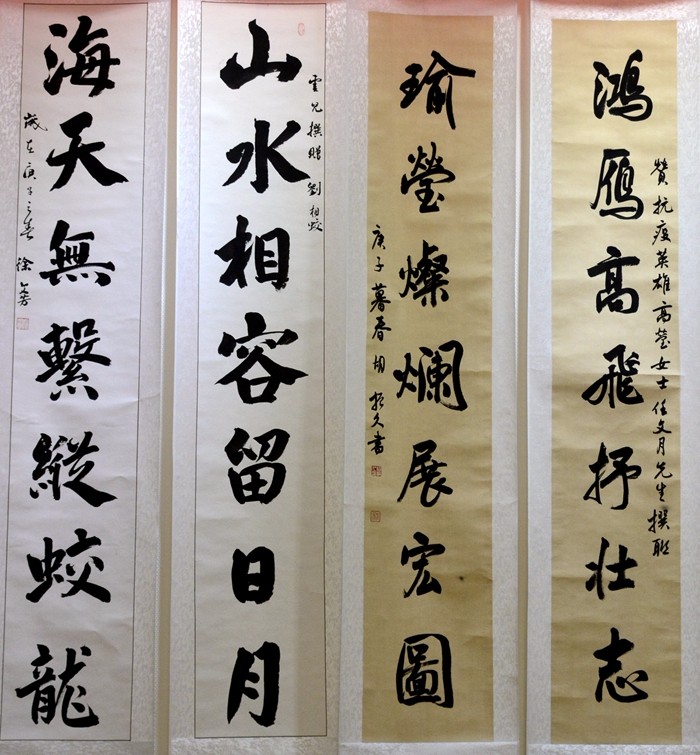 鴻雁高飛抒壯志
贊抗疫英雄高瑩女士任文月先生撰聯
瑜瑩燦爛展宏圖
庚子暮春胡振久書
山水相容留日月
雲兄撰贈劉相蛟
海天無繫縱蛟龍
歲在庚子之春 徐